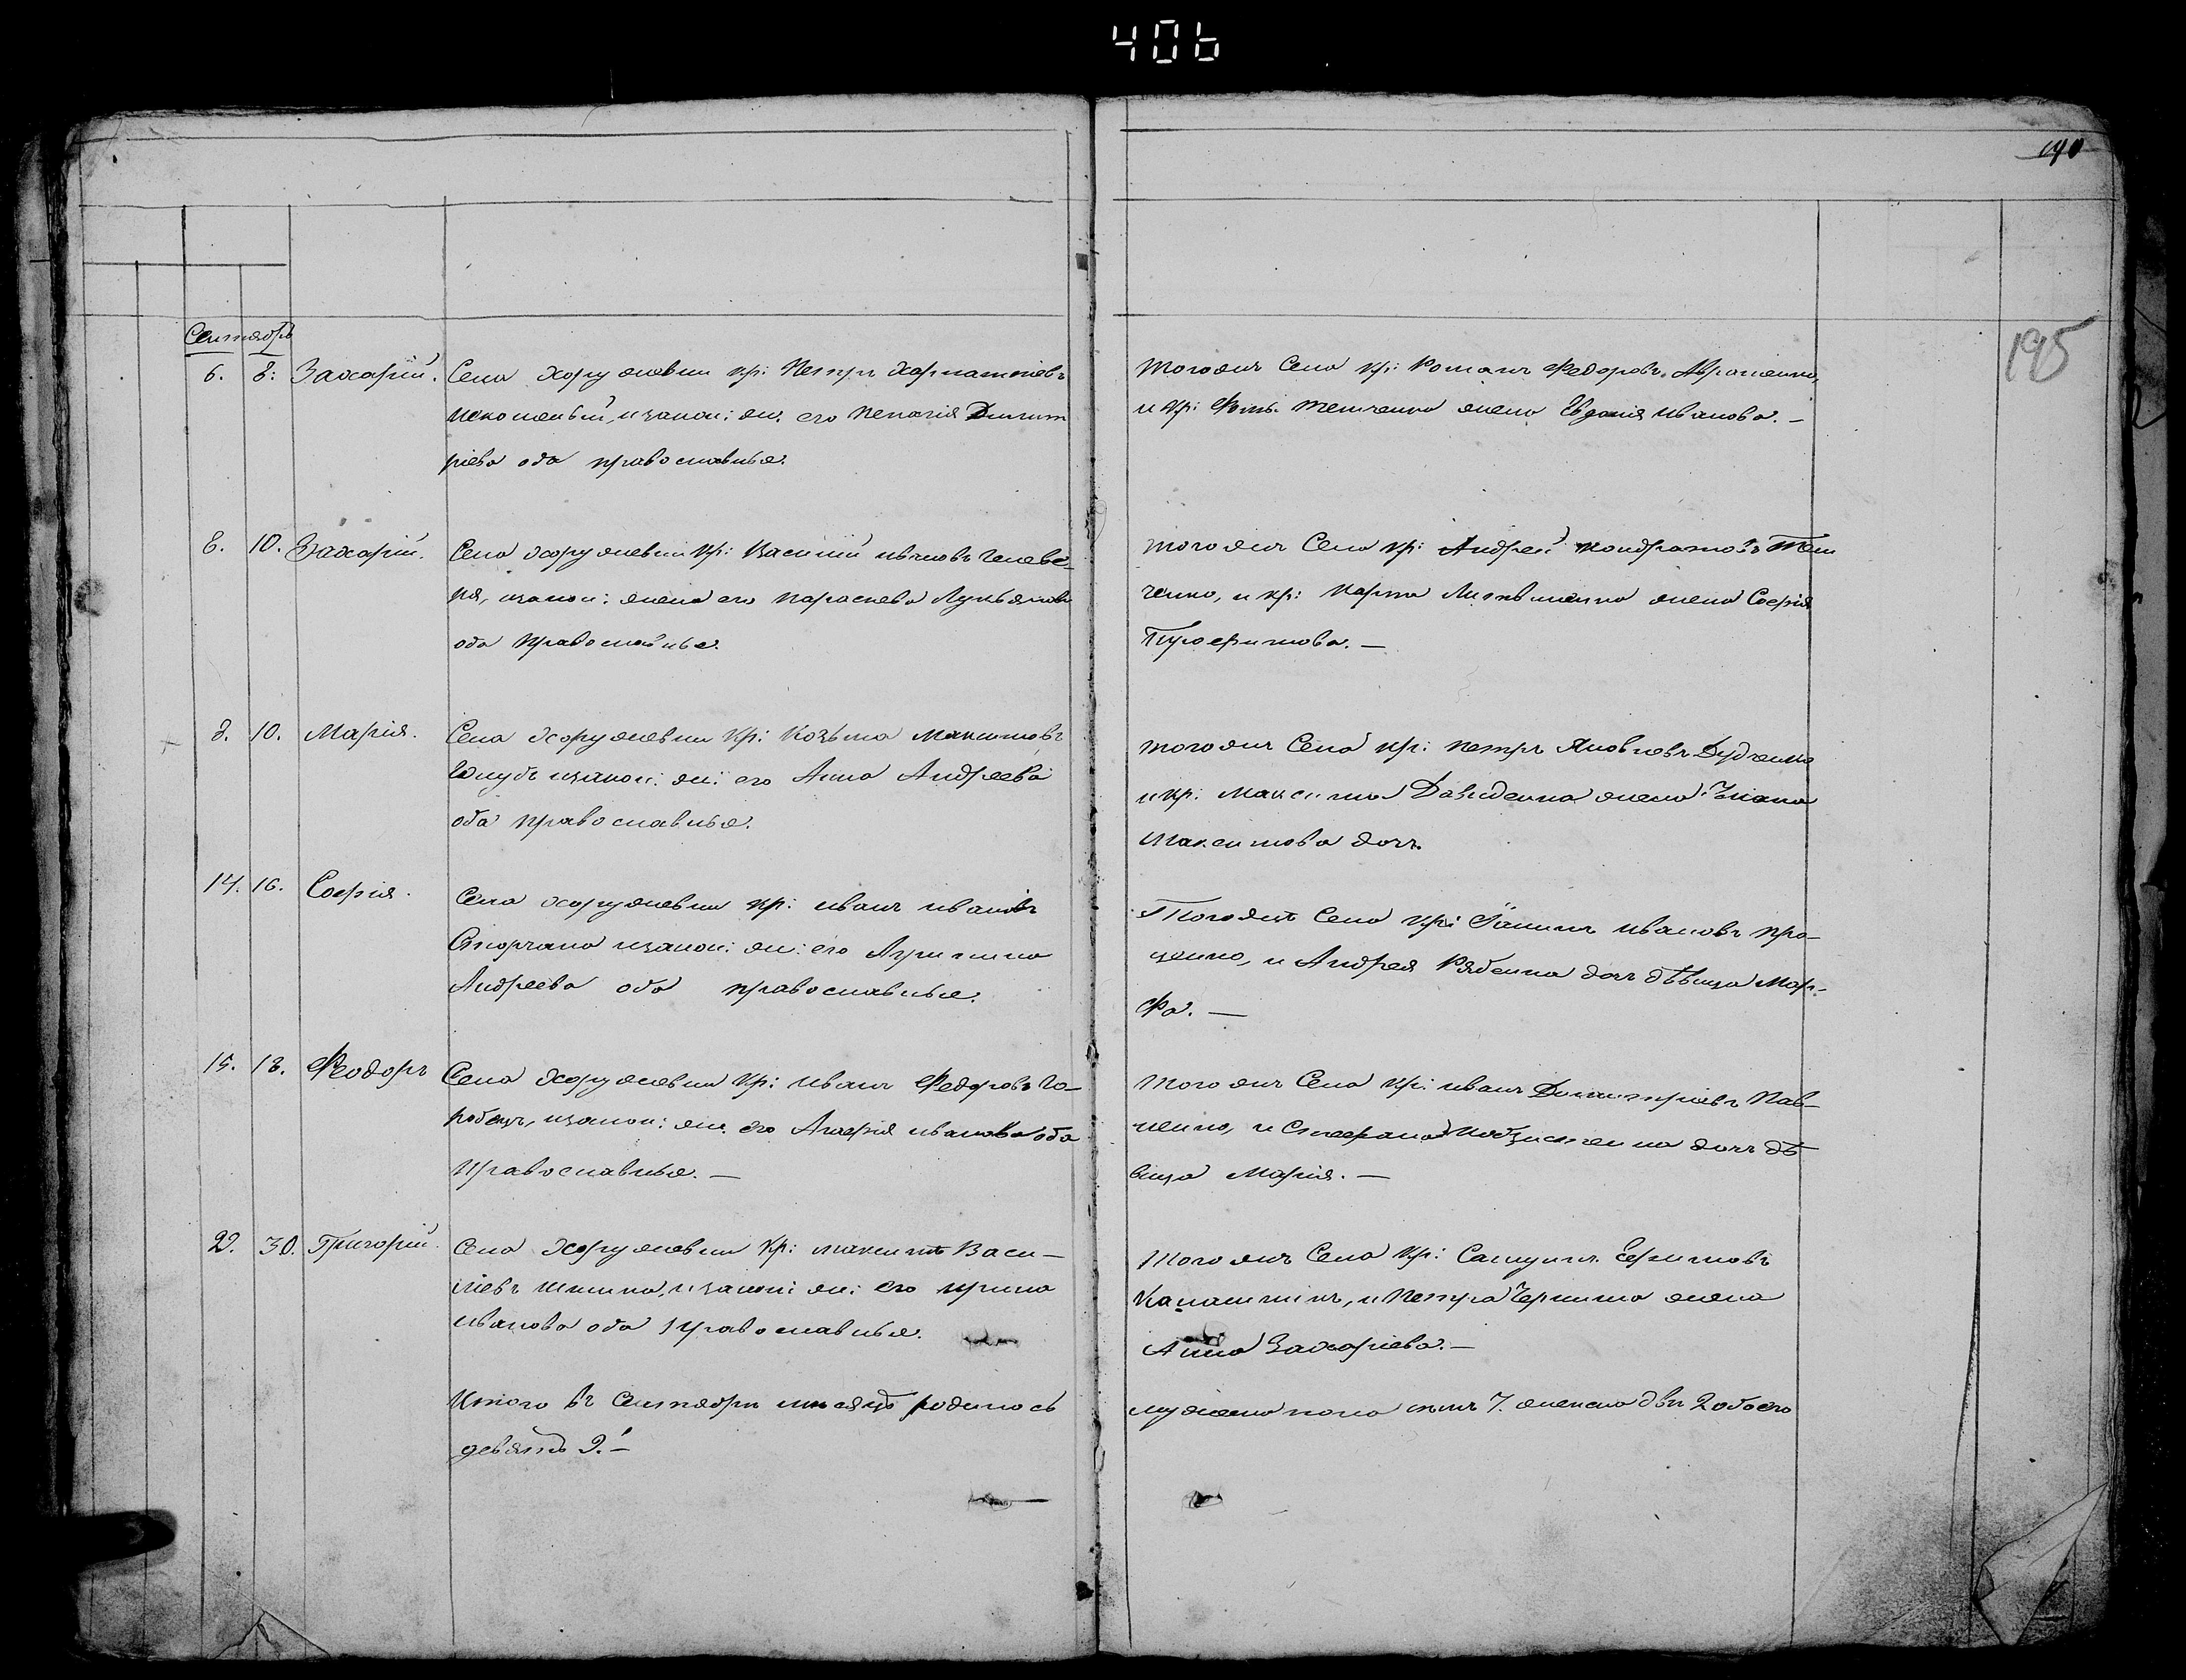 406
190
195
Сентябрь
6. 8: Захарій. Села Хоружевки кр: Петръ Харлампіевъ
и закон: же: его Пелагія Димит
ріева оба православные.
тогожъ Села кр: Романъ Федоровъ Авраменко,
и кр: жена Евдокія Иванова. —
8. 10. Захарій. Села Хоружевки кр: Василій Ивановъ Челове-
ря, и закон: жена его Параскева Лукьянова
оба православные.
тогожъ Села кр: Андрей Кондратовъ Тем
ченко, и кр: Карпа жена Софія
Трофимова. —
8. 10. Марія. Села Хоружевки кр: Козьма Максимовъ
Голубъ и закон: же: его Анна Андреева
оба православные.
тогожъ Села кр: Петръ Яковлевъ Дудченко
и кр: Максима Давиденка жена
Максимова дочь.
14. 16. Софія. Села Хоружевки кр: Иванъ Ивановъ
и закон: же: его
Андреева оба православные.
Тогожъ Села кр: Ивановъ Про-
ценко, и Андрея Рябенка дочь дѣвица Мар-
фа. —
15. 18. Феодоръ Села Хоружевки кр: Иванъ Федоровъ Го-
робецъ, и закон: же: его Агафія Иванова оба
православные. —
тогожъ Села кр: Иванъ Димитріевъ Пав-
ленко, и Стефана дочь дѣ
вица Марія. —
29. 30. Григорій. Села Хоружевки кр: Максимъ Васи-
ліевъ и закон: же: его Ирина
Иванова оба православные.
тогожъ Села кр: Самуилъ Ефимовъ
и Петра жена
Анна Захаріева. —
Итого въ Сентябрѣ мѣсяцѣ родилось
мужеска пола семь 7. женска двѣ 2 обоего
девять 9. —